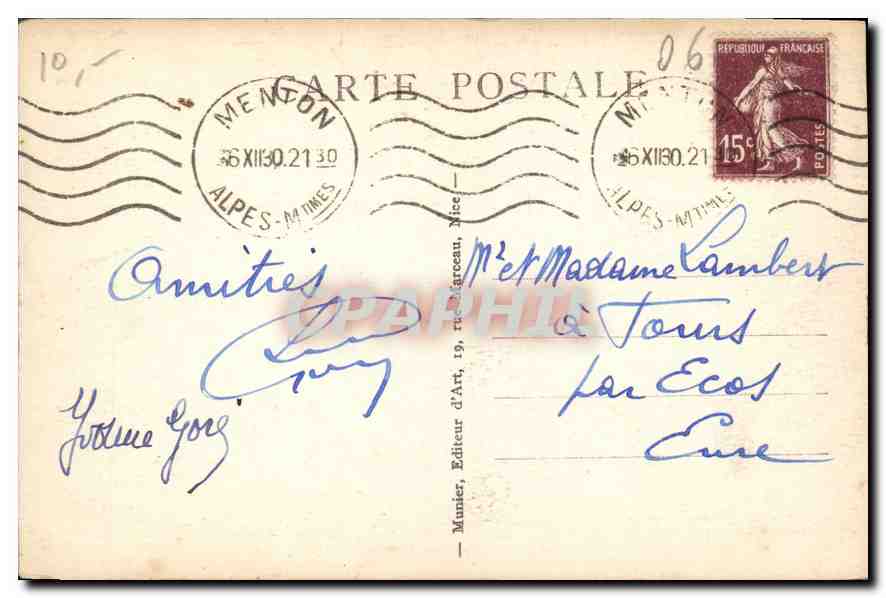 10,-
06
CARTE POSTALE
RÉPUBLIQUE FRANÇAISE
15c
POSTES
MENTON
6 XII 30. 21 30
ALPES-MTIMES
MENTON
6 XII 30. 21
ALPES-MTIMES
Amitiés
Yvonne Goré
— Munier, Editeur d'Art, 19, rue Marceau, Nice —
Mr et Madame Lambert
à Tours
par Ecos
Eure
CPAPHIL